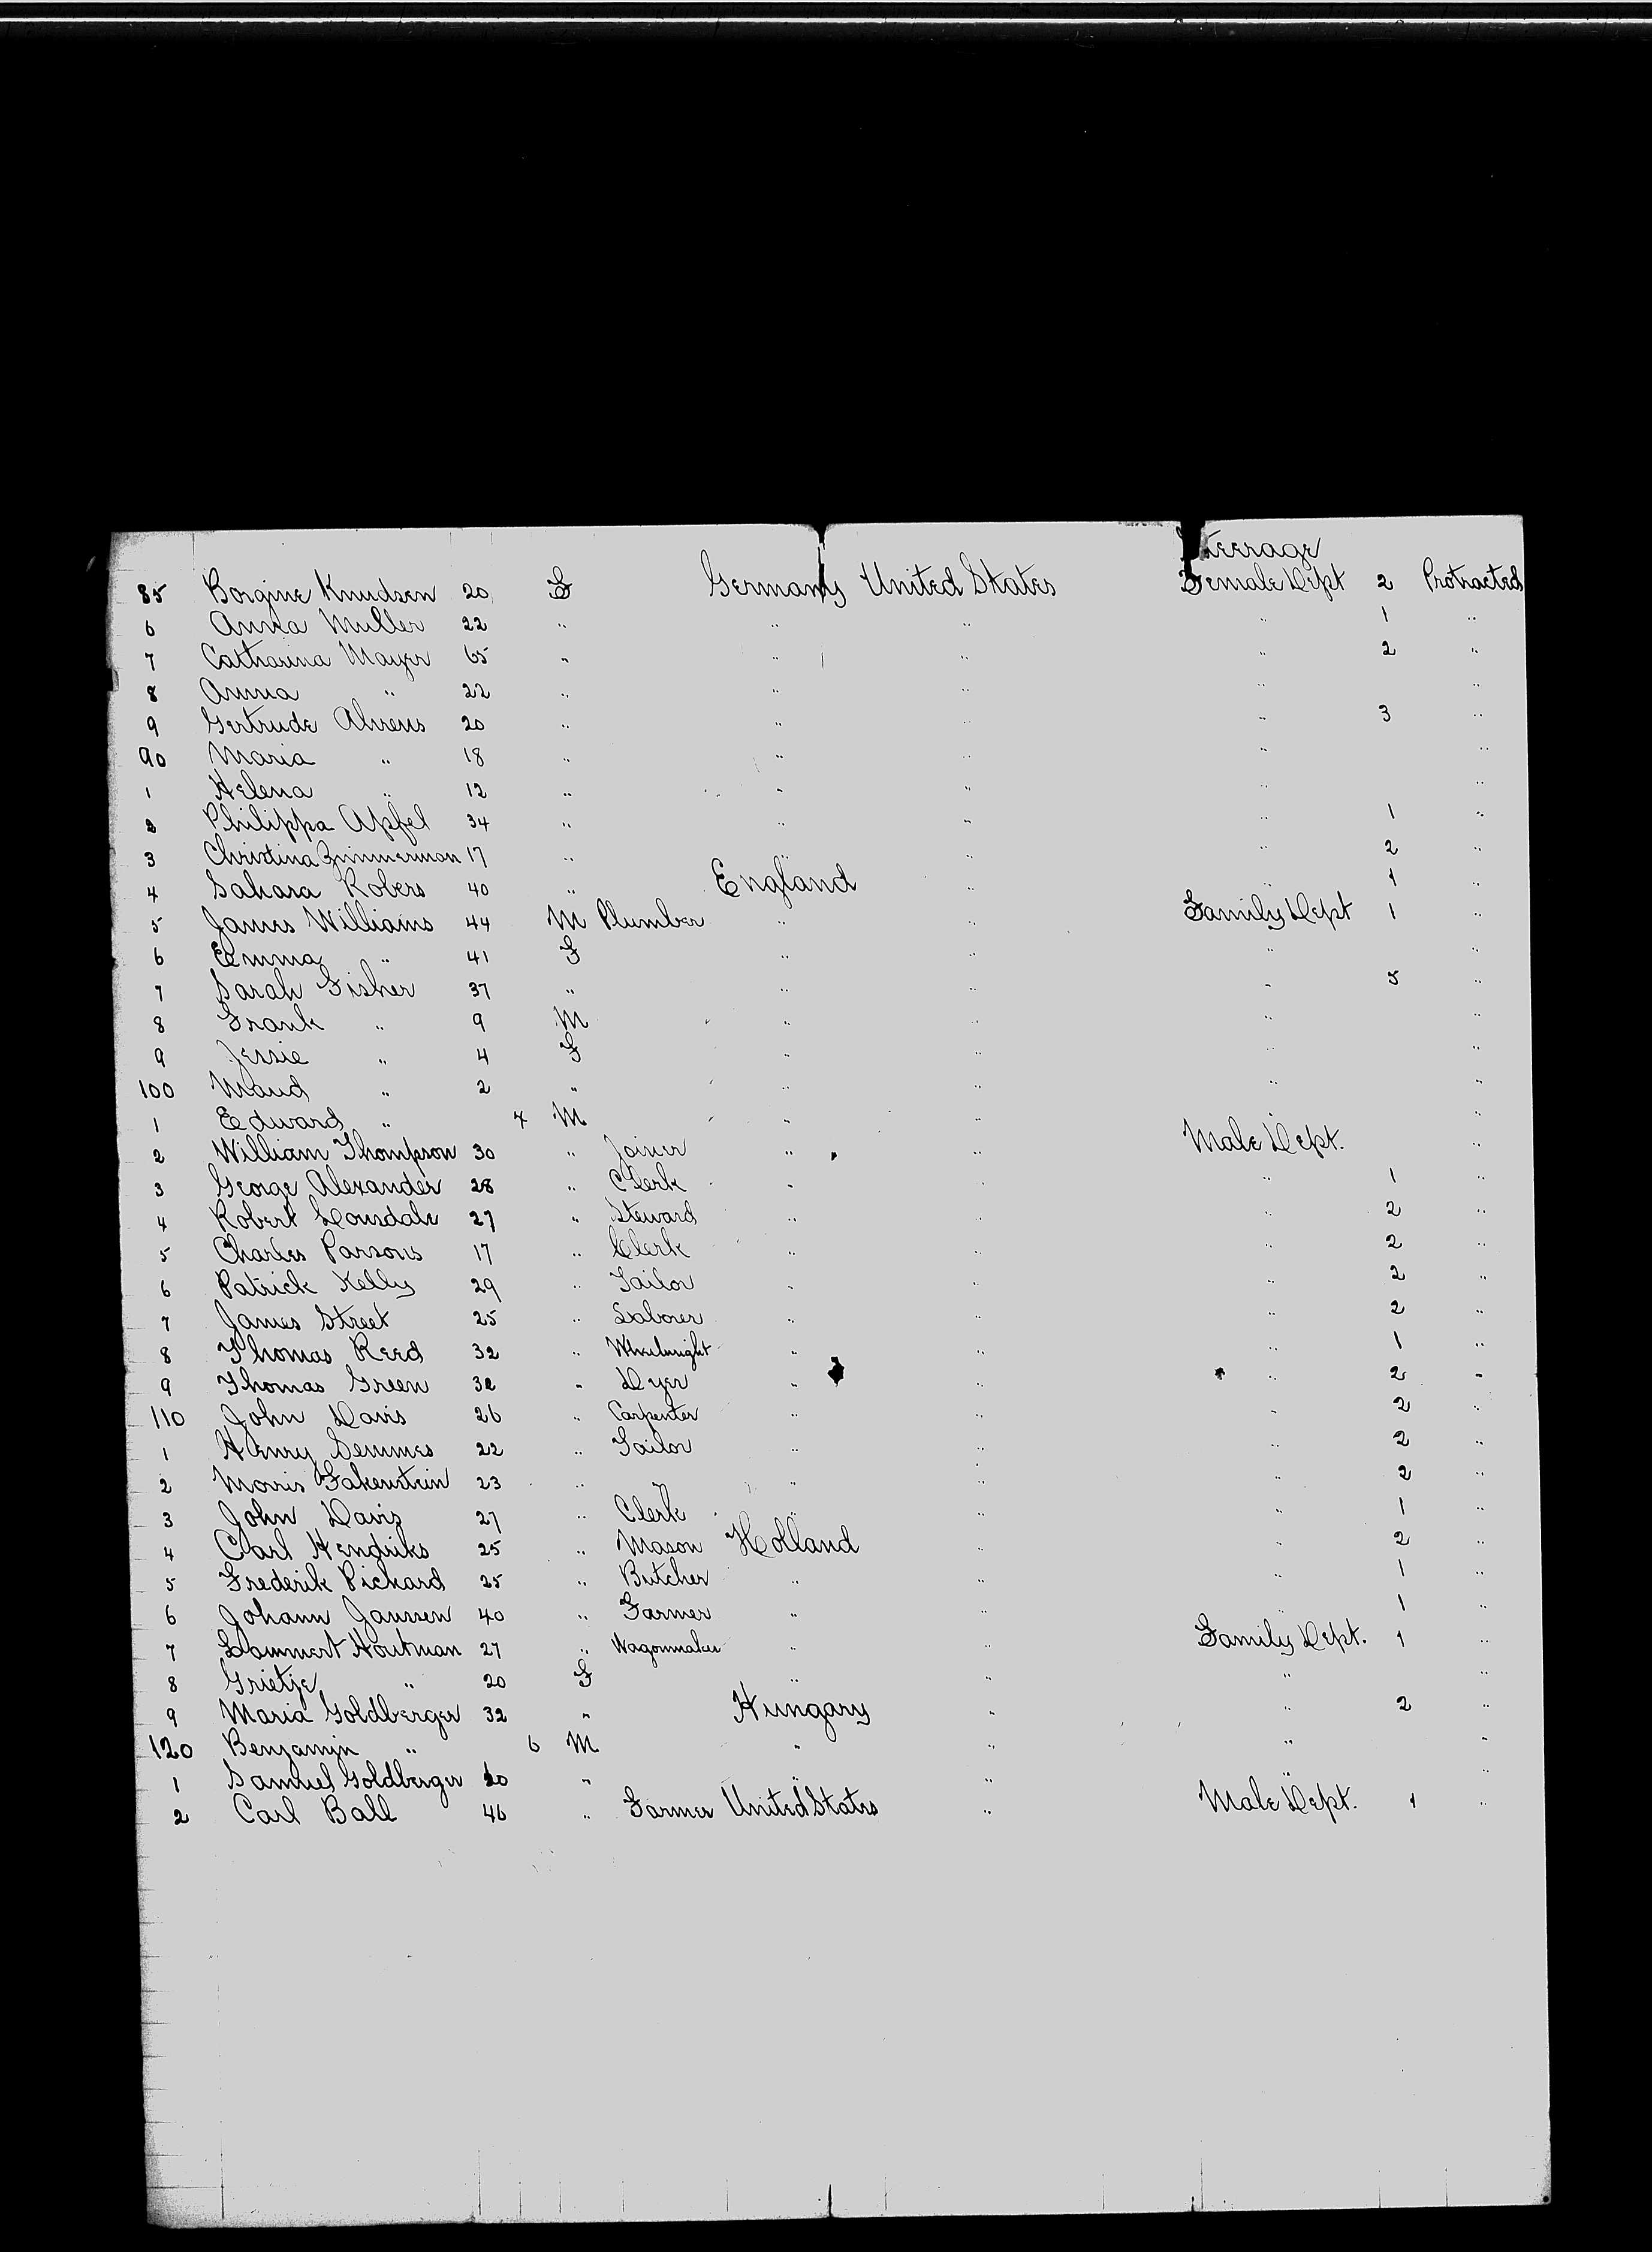 Steerage
85 Borgine Knudsen 20 F Germany United States Female Dept 2 Protracted
6 Anna Muller 22 " " " " 1 "
7 Catharina Mayer 65 " " " " 2 "
8 Anna " 22 " " " " "
9 Gertrude Ahrens 20 " " " " 3 "
90 Maria " 18 " " " " "
1 Helena " 12 " " " " "
2 Philippa Apfel 34 " " " " 1 "
3 Christina Zimmerman 17 " " " " 2 "
4 Sahara Robers 40 " England " " 1 "
5 James Williams 44 M Plumber " " Family Dept 1 "
6 Emma " 41 F " " " "
7 Sarah Fisher 37 " " " " 5 "
8 Frank " 9 M " " " "
9 Jessie " 4 F " " " "
100 Maud " 2 " " " " "
1 Edward " 7 M " " " "
2 William Thompson 30 " Joiner " " Male Dept. "
3 George Alexander 28 " Clerk " " " 1 "
4 Robert Lonsdale 27 " Steward " " " 2 "
5 Charles Parsons 17 " Clerk " " " 2 "
6 Patrick Kelly 29 " Tailor " " " 2 "
7 James Street 25 " Laborer " " " 2 "
8 Thomas Reed 32 " Wheelwright " " " 1 "
9 Thomas Green 32 " Dyer " " " 2 "
110 John Davis 26 " Carpenter " " " 2 "
1 Henry Semmes 22 " Tailor " " " 2 "
2 Morris Fakenstein 23 " " " " " 2 "
3 John Davis 27 " Clerk " " " 1 "
4 Carl Hendriks 25 " Mason Holland " " 2 "
5 Frederik Pickard 25 " Butcher " " " 1 "
6 Johann Janssen 40 " Farmer " " " 1 "
7 Lammert Houtman 27 " Wagonmaker " " Family Dept. 1 "
8 Grietje " 20 F " " " "
9 Maria Goldberger 32 " Hungary " " 2 "
120 Benjamin " 6 M " " " "
1 Samuel Goldberger 20 " " " " "
2 Carl Ball 46 " Farmer United States " Male Dept. 1 "